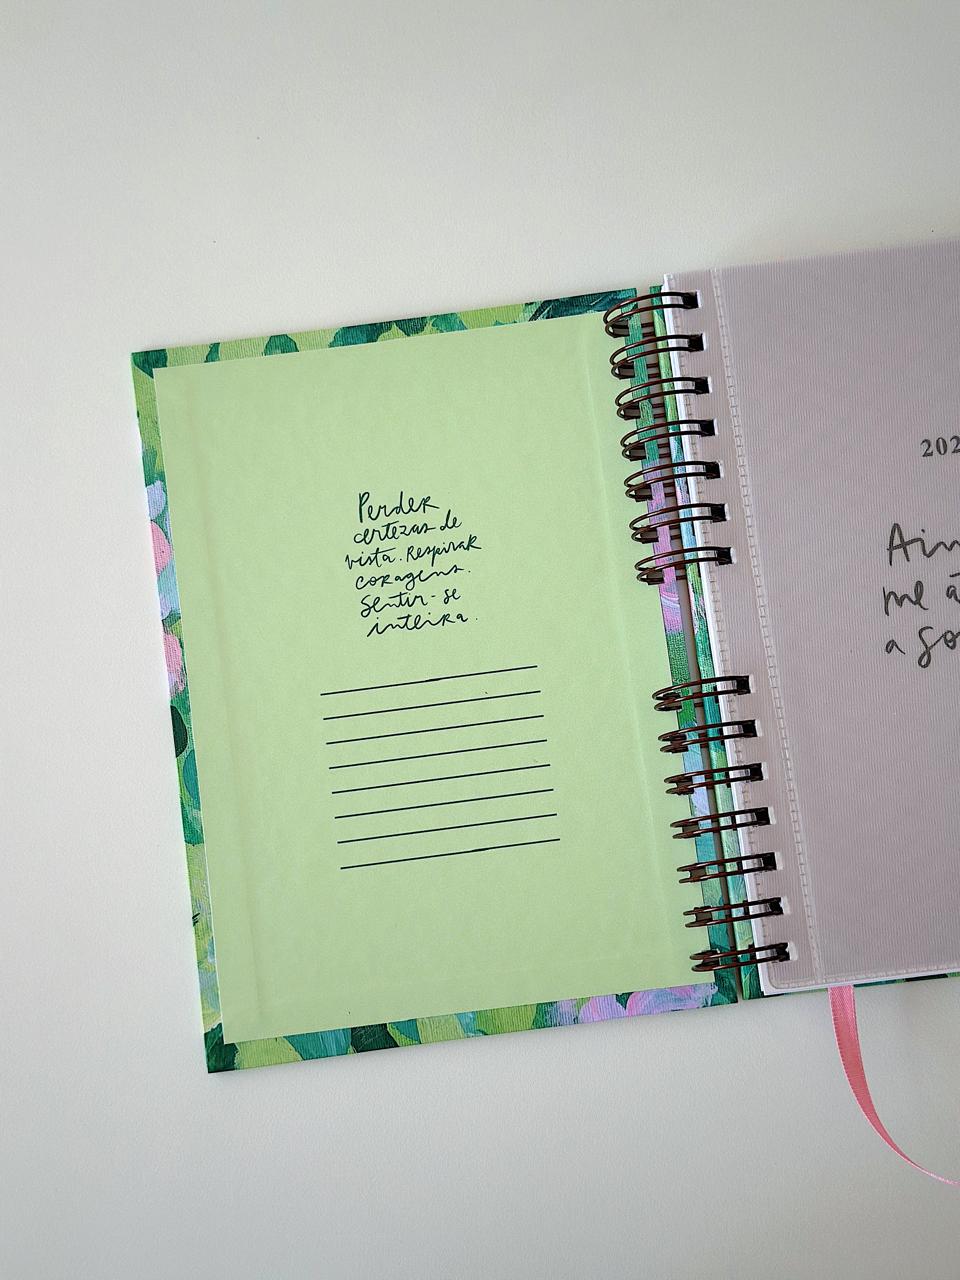 Perder
certezas de
vista. Respirar
coragens.
Sentir-se
inteira.
202
Ain
me a
a so